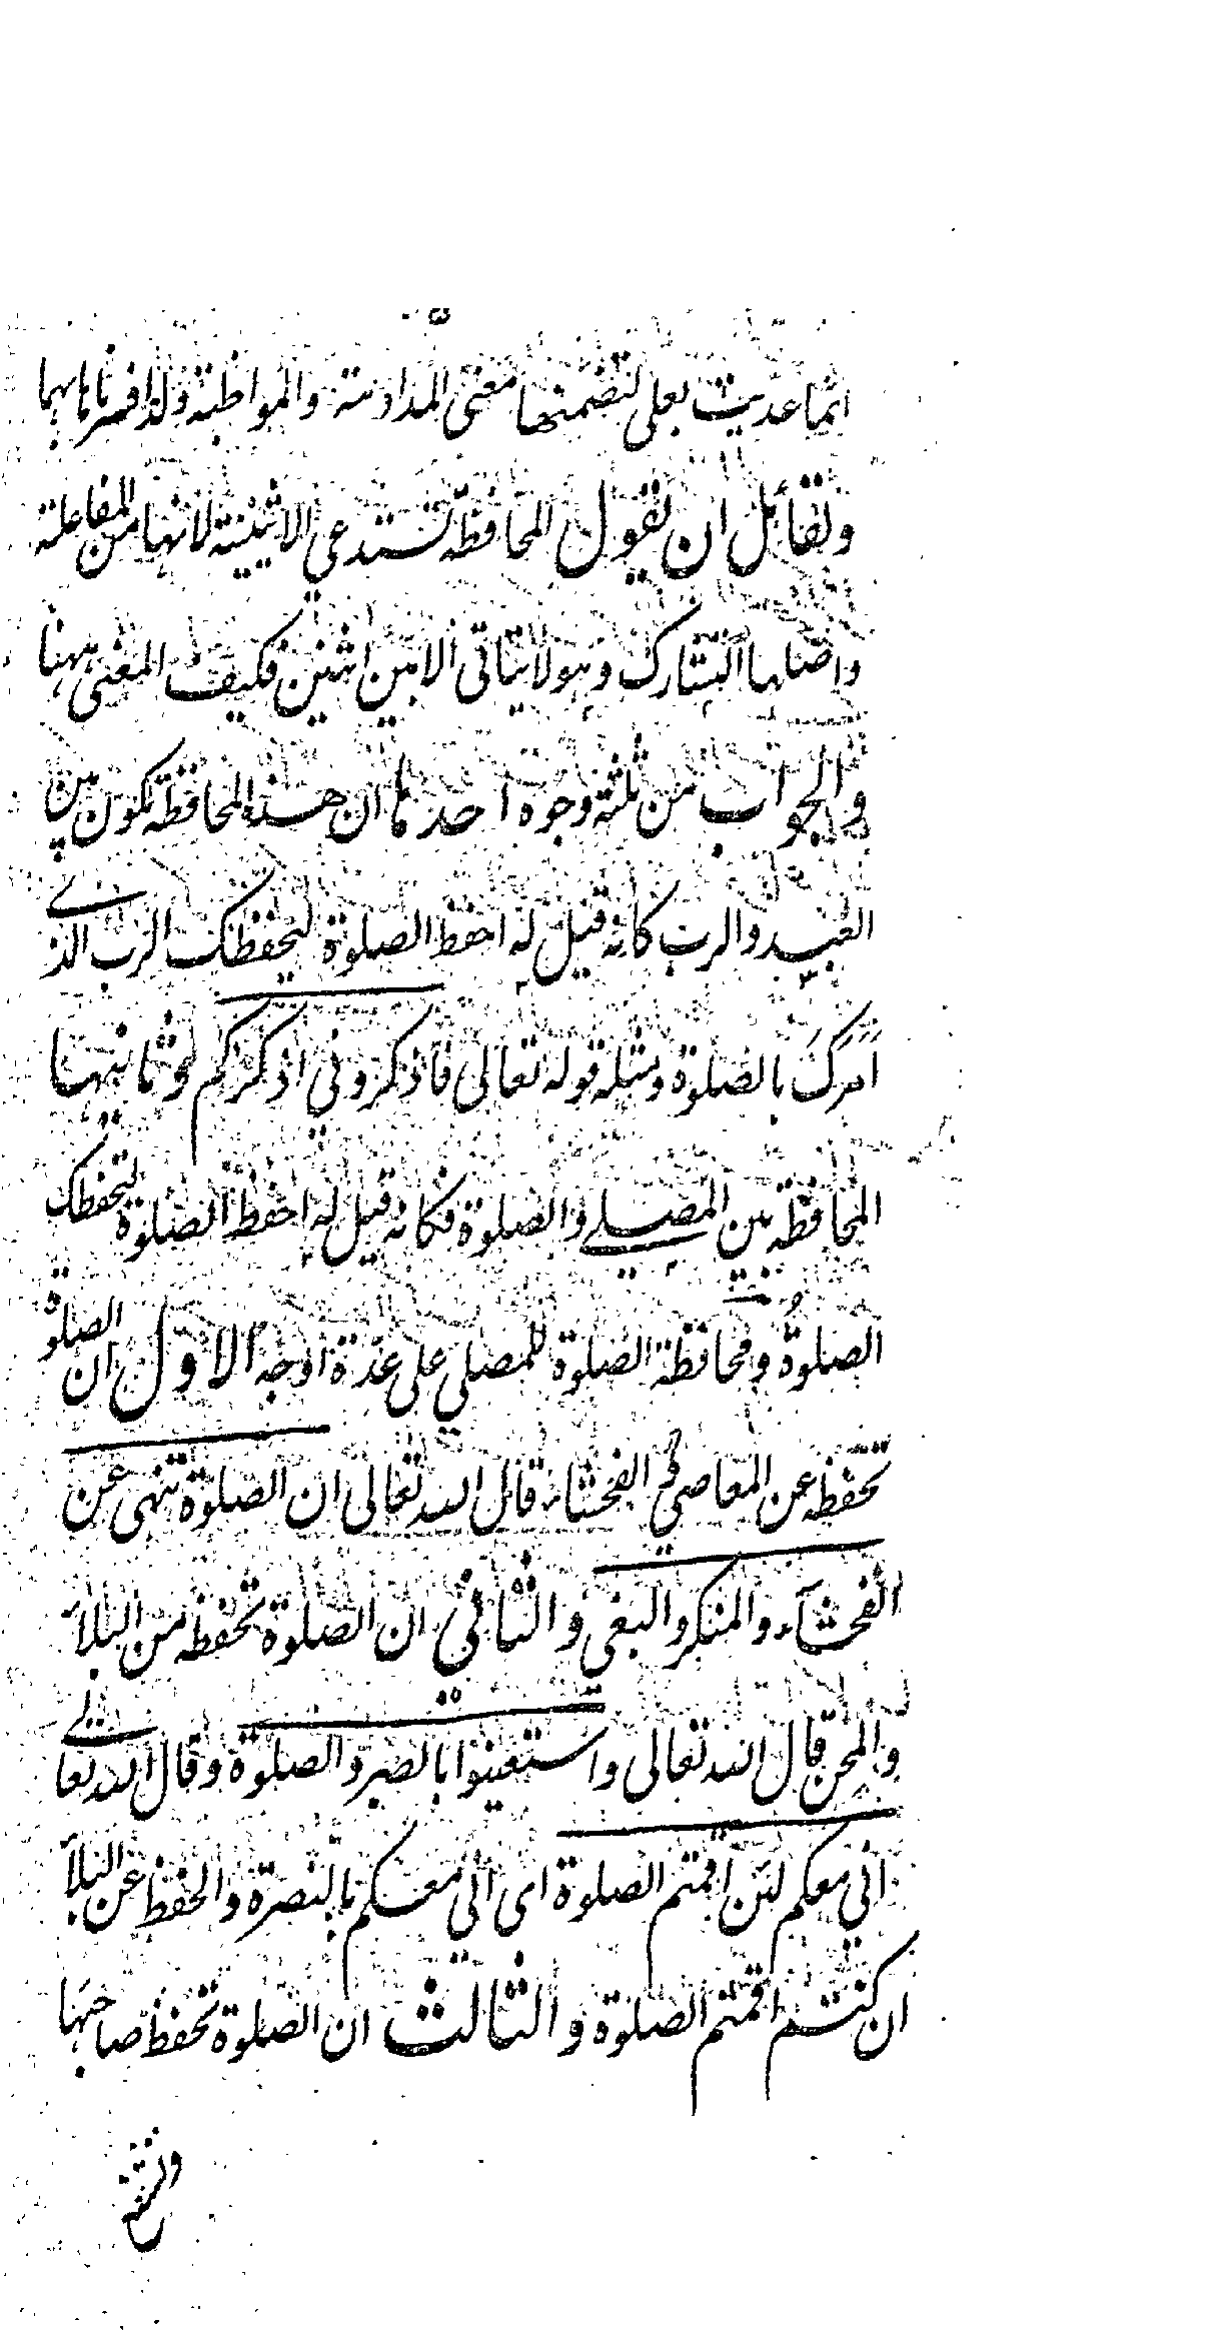 انما عديت بعلى لتضمنها معنى المداومة والمواظبة ولذا فسرناها بهما
ولقائل ان يقول المحافظة تستدعي الاثنينية لانها من المفاعلة
واصلها التشارك وهو لا يتاتى الا بين اثنين فكيف المعنى ههنا
والجواب من ثلثة وجوه احدها ان هذه المحافظة تكون بين
العبد والرب كانه قيل له احفظ الصلوة ليحفظك الرب الذي
امرك بالصلوة ومثله قوله تعالى فاذكروني اذكركم وثانيها
المحافظة بين المصلي والصلوة فكانه قيل له احفظ الصلوة لتحفظك
الصلوة ومحافظة الصلوة للمصلي على عدة اوجه الاول ان الصلوة
تحفظه عن المعاصي الفحشاء قال الله تعالى ان الصلوة تنهى عن
الفحشاء والمنكر والبغي والثاني ان الصلوة تحفظه من البلاء
والمحن قال الله تعالى واستعينوا بالصبر والصلوة وقال الله تعالى
اني معكم لئن اقمتم الصلوة اى اني معكم بالنصرة والحفظ عن البلاء
ان كنتم اقمتم الصلوة والثالث ان الصلوة تحفظ صاحبها
وتشفع